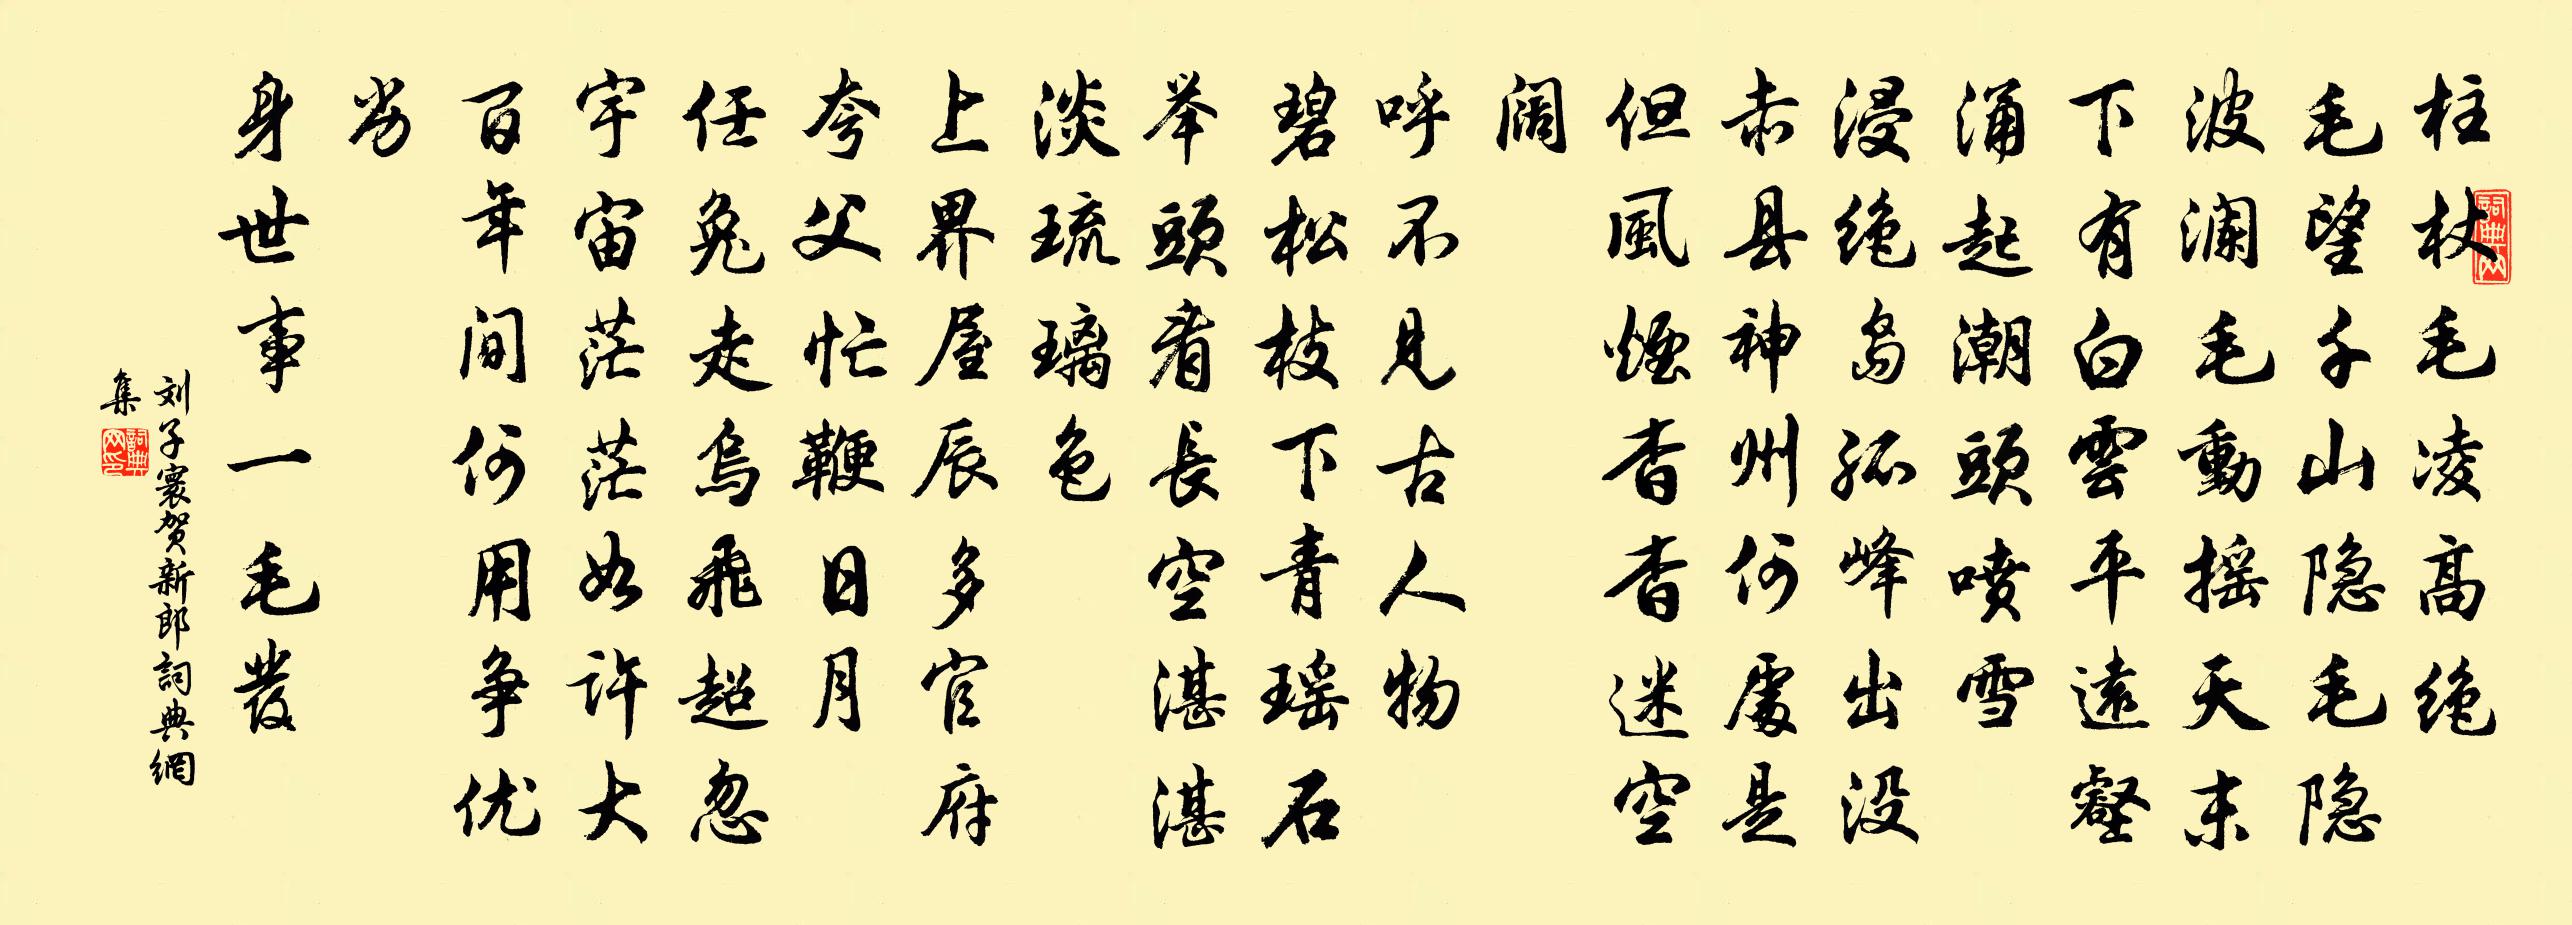 柱杖毛凌高绝
毛望千山隐毛隐
波澜毛動摇天末
下有白雲平遠壑
涌起潮頭喷雪
浸绝岛孤峰出没
赤县神州何處是
但風煙杳杳迷空
阔
呼不见古人物
碧松枝下青瑶石
举頭看長空湛湛
淡琉璃色
上界屋辰多官府
夸父忙鞭日月
任兔走烏飛超忽
宇宙茫茫如许大
百年间何用争优
劣
身世事一毛發
刘子寰贺新郎詞典網
集
詞典网
詞典网印